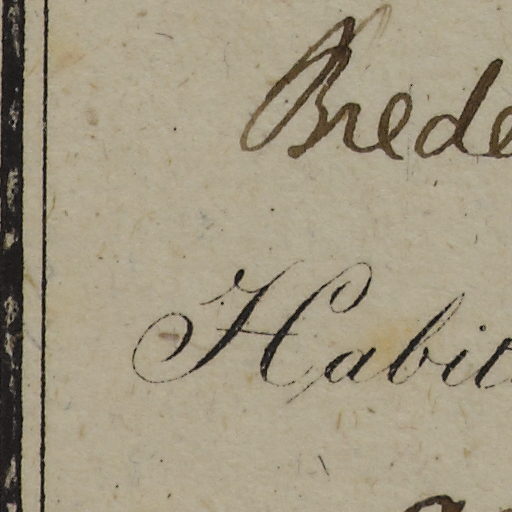 Brede
Habit